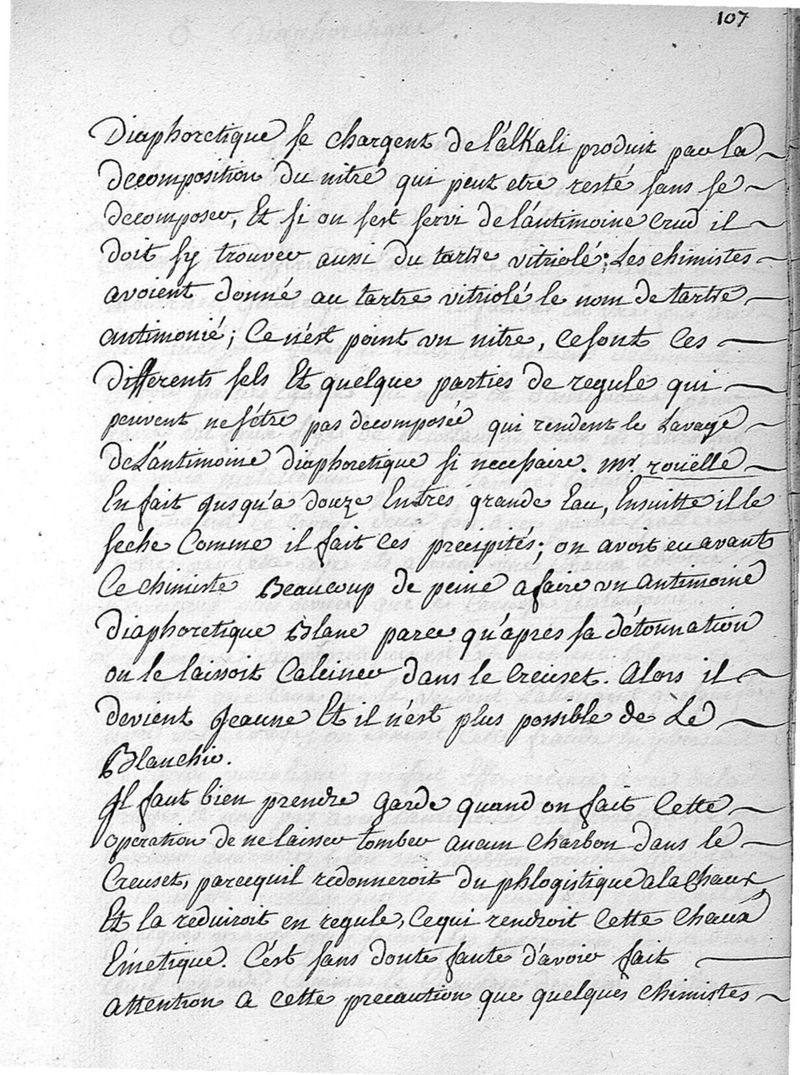 107
Diaphoretique se chargent de l'alkali produit par la
decomposition du nitre qui peut etre resté sans se
decomposer, Et si on s'est servi de l'antimoine crud il
doit s'y trouver aussi du tartre vitriolé; Les chimistes
avoient donné au tartre vitriolé le nom de tartre
antimonié; Ce n'est point un nitre, ce sont ces
differents sels Et quelque parties de regule qui
peuvent ne s'étre pas decomposée qui rendent le Lavage
de L'antimoine diaphoretique si necessaire. Mr. rouëlle
En fait jusqu'a douze En tres grande Eau, Ensuitte il le
seche Comme il fait ces precipités; on avoit eu avant
Ce chimiste Beaucoup de peine a faire un antimoine
diaphoretique Blanc parce qu'après sa détonnation
on le laissoit Calciner dans le Creuset. Alors il
devient Jeaune Et il n'est plus possible de Le
Blanchir.
Il faut bien prendre garde quand on fait Cette
operation de ne laisser tomber aucun Charbon dans le
Creuset, parcequil redonneroit du phlogistique a la Chaux
Et la reduiroit en regule, Ce qui rendroit Cette Chaux
Emetique. C'est sans doute faute d'avoir fait
attention a cette precaution que quelques chimistes